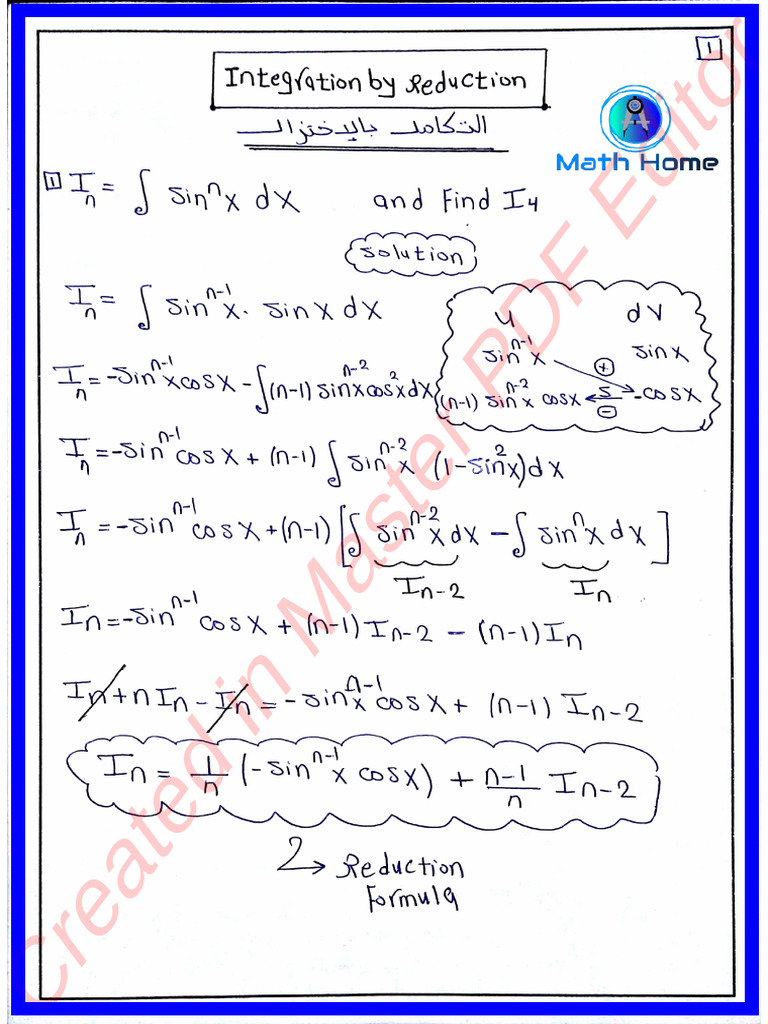 1
Integration by Reduction
التكامل بالإختزال
Math Home
1 Iₙ = ∫ sinⁿx dx and Find I₄
solution
Iₙ = ∫ sinⁿ⁻¹x · sin x dx
u dv
sinⁿ⁻¹x sin x
+
(n-1) sinⁿ⁻²x cosx ← ∫ -cosx
−
Iₙ = -sinⁿ⁻¹x cosx - ∫(n-1) sinⁿ⁻²x cos²x dx
Iₙ = -sinⁿ⁻¹ cosx + (n-1) ∫ sinⁿ⁻²x (1-sin²x)dx
Iₙ = -sinⁿ⁻¹ cosx + (n-1) [∫ sinⁿ⁻²x dx - ∫ sinⁿx dx]
Iₙ₋₂ Iₙ
Iₙ = -sinⁿ⁻¹ cosx + (n-1) Iₙ₋₂ - (n-1) Iₙ
Iₙ + n Iₙ - Iₙ = -sinⁿ⁻¹x cosx + (n-1) Iₙ₋₂
Iₙ = 1/n (-sinⁿ⁻¹x cosx) + n-1/n Iₙ₋₂
→ Reduction
Formula
Created in Master PDF Editor